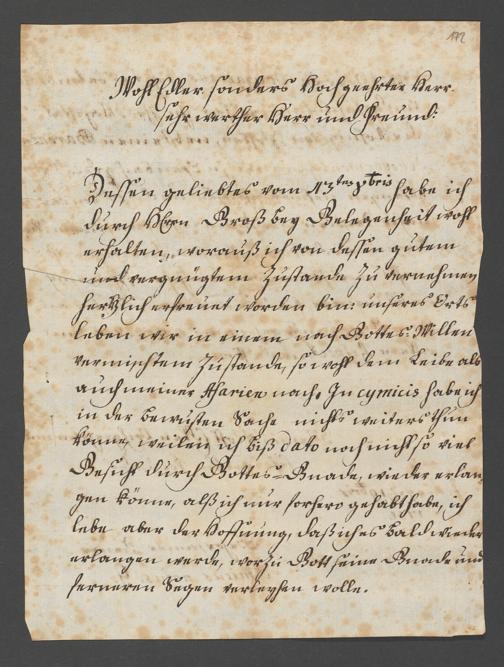 172
Wohl Edler sonders Hochgeehrter Herr
sehr werther Herr und Freund:
Dessen geliebtes vom 13ten habe ich
durch Herrn Groß bey Gelegenheit wohl
erhalten, worauß ich von dessen gutem
und vergnügtem Zustande zu vernehmen
hertzlich erfreuet worden bin: unseres Orts
leben wir in einem nach Gottes Willen
vermischtem Zustande, so wohl dem Leibe als
auch meiner nach. In cymicis habe ich
in der bewusten Sache nichts weiters thun
können, weilen ich biß dato noch nicht so viel
Gesicht durch Gottes Gnade, wieder erlan-
gen könne, alß ich nur vorhero gehabt habe, ich
lebe aber der Hoffnung, daß ich es bald wieder
erlangen werde, worzu Gott seine Gnade und
ferneren Segen verleyhen wolle.